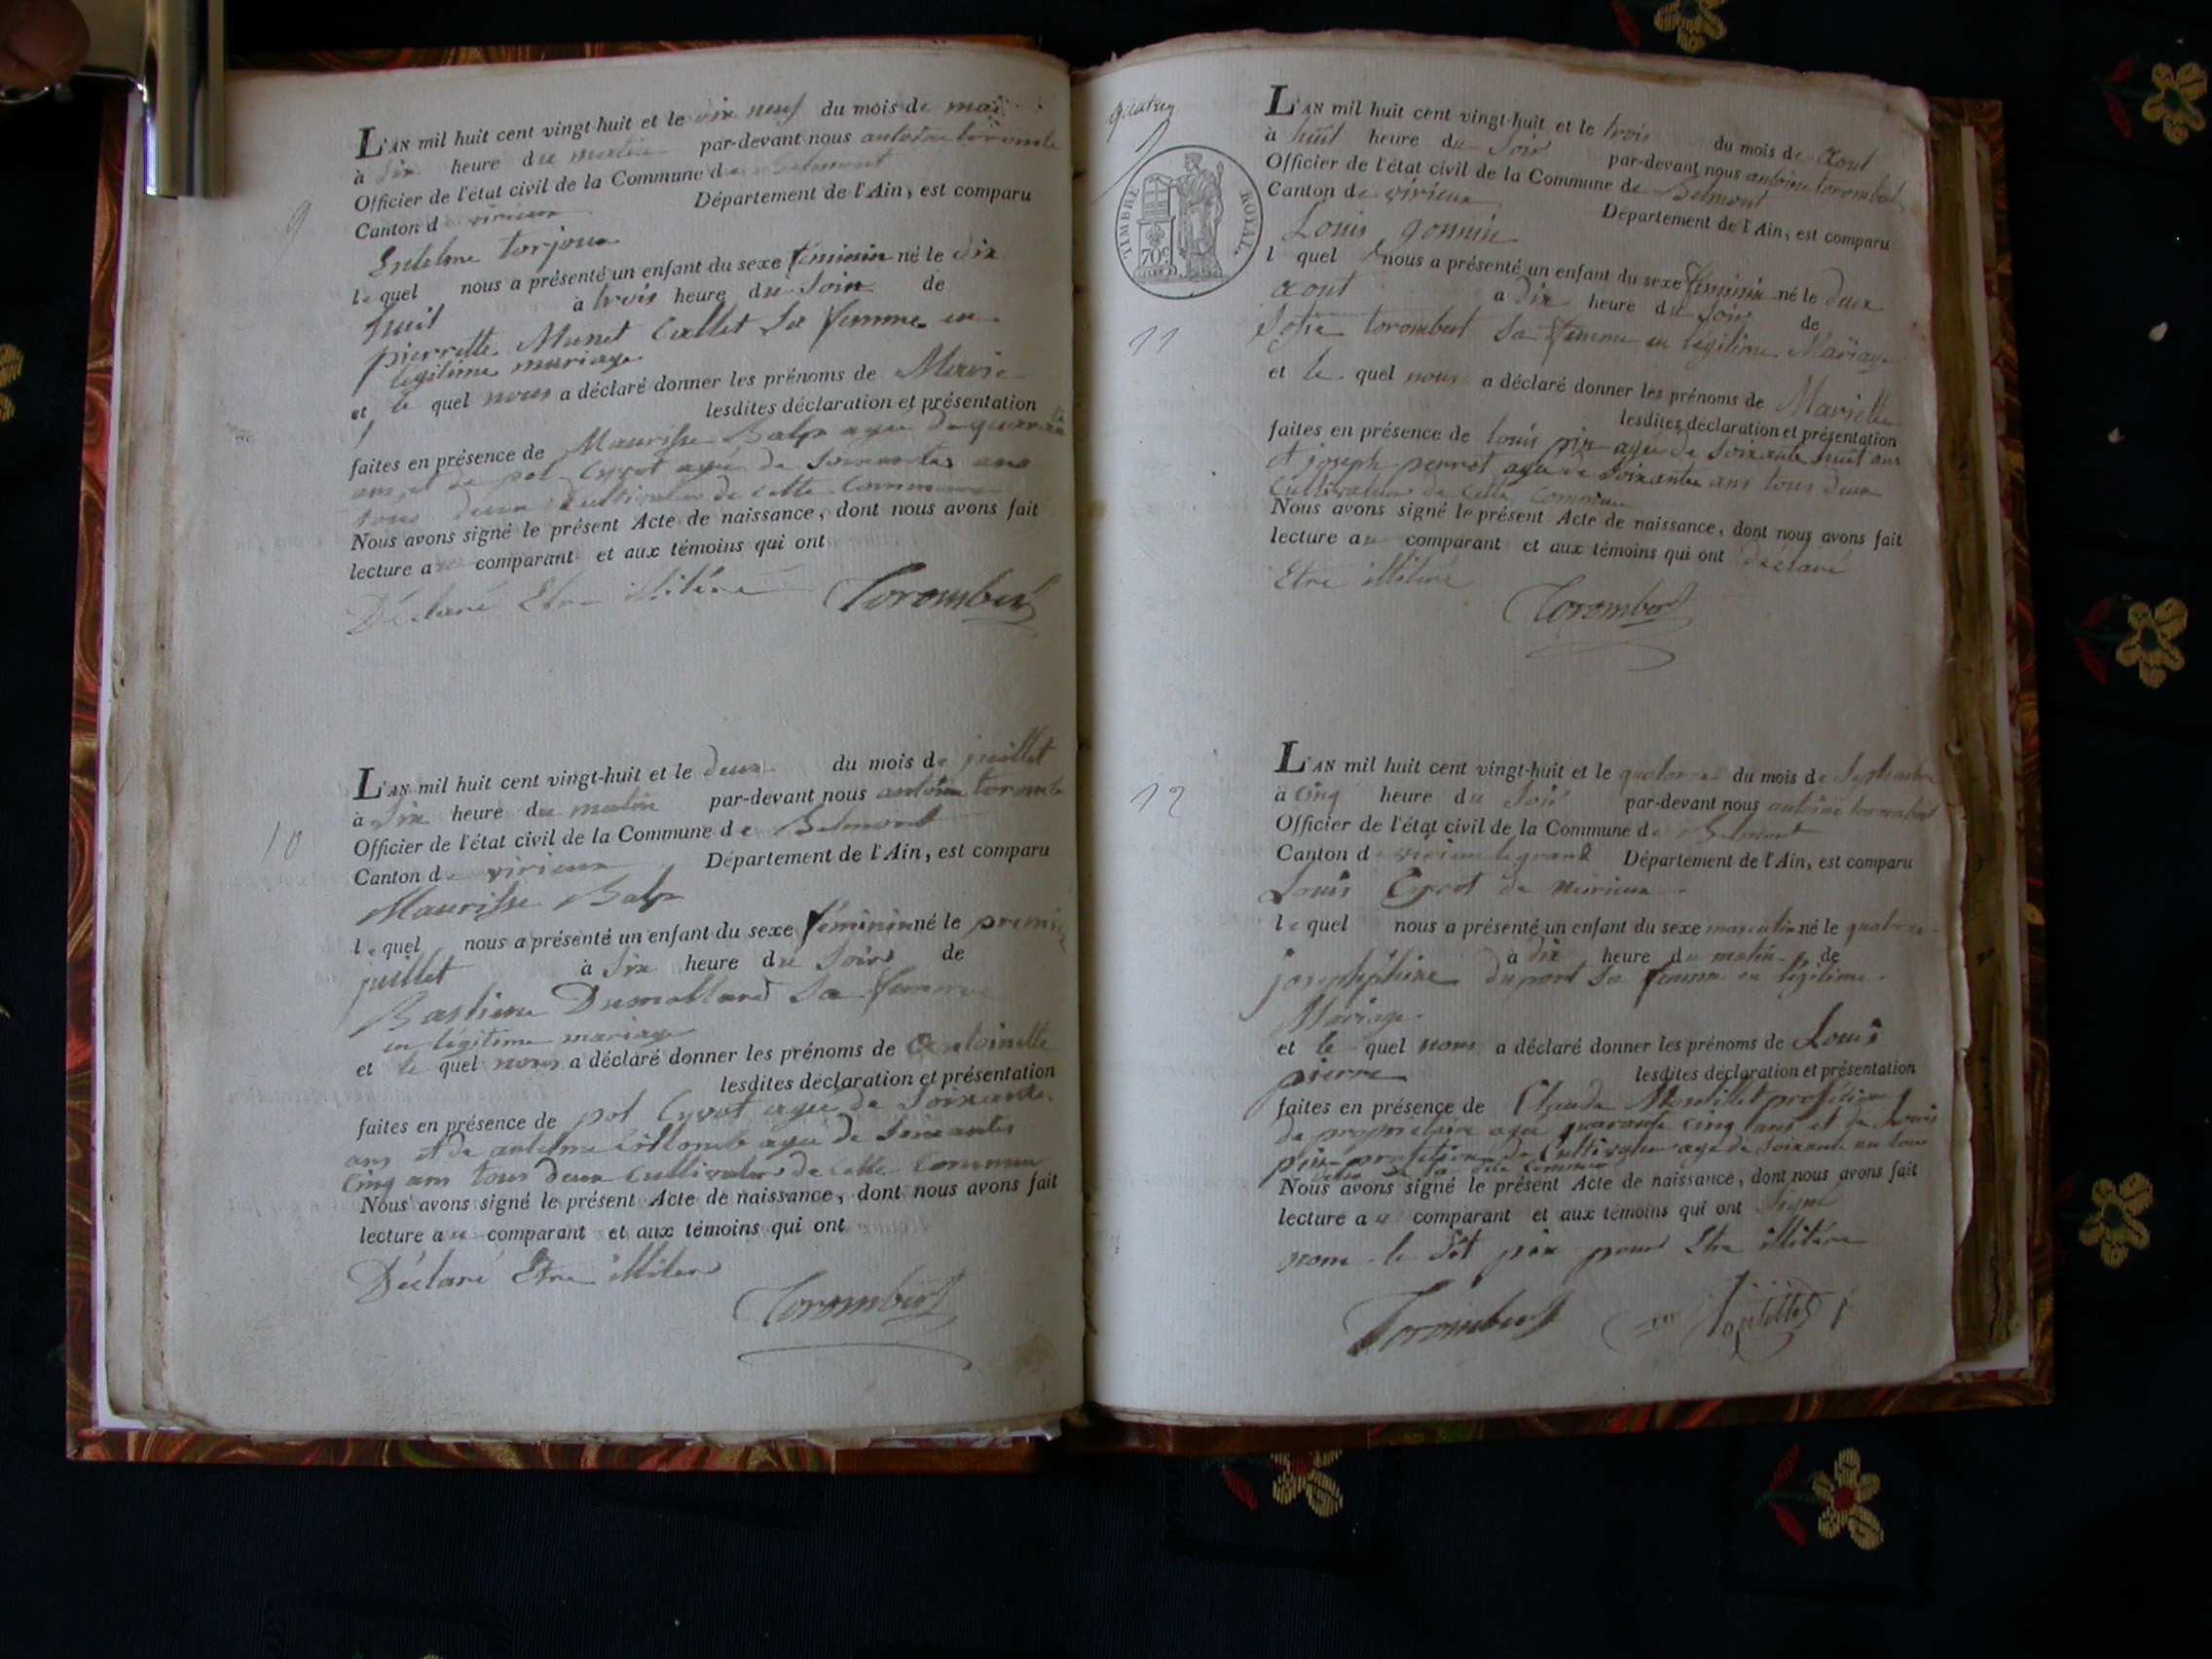 9
L'AN mil huit cent vingt-huit et le dix neuf du mois de mai
à dix heure du matin par-devant nous antoine torombe
Officier de l'état civil de la Commune de Belmont
Canton de virieux Département de l'Ain, est comparu
Entelme torjoux
le quel nous a présenté un enfant du sexe féminin né le dix
huit à trois heure du Soir de
pierrette Munet Callet Sa femme en
légitime mariage
et le quel nous a déclaré donner les prénoms de Marie
lesdites déclaration et présentation
faites en présence de Maurisse Balp agé de quarante
ans et de pol Cyvot agé de Soixantes ans
tous deux Cultivateur de cette Commune
Nous avons signé le présent Acte de naissance, dont nous avons fait
lecture au comparant et aux témoins qui ont
Déclaré Etre illitéré
Torombert
10
L'AN mil huit cent vingt-huit et le deux du mois de juillet
à Six heure du matin par-devant nous antoine torombe
Officier de l'état civil de la Commune de Belmont
Canton de virieux Département de l'Ain, est comparu
Maurisse Balp
le quel nous a présenté un enfant du sexe féminin né le premie
juillet à Six heure du Soir de
Bastiene Dumollard Sa femme
en légitime mariage
et le quel nous a déclaré donner les prénoms de Antoinette
lesdites déclaration et présentation
faites en présence de pol Cyvot agé de Soixante
ans et de antelme agé de Soixantes
Cinq ans tous deux Cultivateur de cette Commune
Nous avons signé le présent Acte de naissance, dont nous avons fait
lecture au comparant et aux témoins qui ont
Déclaré Etre illiteré
Torombert
TIMBRE ROYAL
70c
11
L'AN mil huit cent vingt-huit et le trois du mois de Aout
à huit heure du Soir par-devant nous antoine torombet
Officier de l'état civil de la Commune de Belmont
Canton de virieux Département de l'Ain, est comparu
Louis gonnin
l quel nous a présenté un enfant du sexe féminin né le deux
aout à dix heure du Soir de
Sofie torombert Sa femme en légitime Mariage
et le quel nous a déclaré donner les prénoms de Mariette
lesdites déclaration et présentation
faites en présence de louis pix agé de Soixante huit ans
et joseph perret agé de Soixantes ans tous deux
Cultivateur de cette Commune
Nous avons signé le présent Acte de naissance, dont nous avons fait
lecture au comparant et aux témoins qui ont déclaré
Etre illiteré
Torombert
12
L'AN mil huit cent vingt-huit et le quatorze du mois de Septembre
à Cinq heure du Soir par-devant nous antoine torombert
Officier de l'état civil de la Commune de Belmont
Canton de virieux le grand Département de l'Ain, est comparu
Louis Cyvot de
le quel nous a présenté un enfant du sexe masculin né le quatorze
à dix heure du matin de
josephphine dupont Sa femme en légitime
Mariage
et le quel nous a déclaré donner les prénoms de Louis
pierre lesdites déclaration et présentation
faites en présence de Claude Montillet profétion
de propriétaire agé quarante cinq ans et de Louis
pix profétion de Cultivateur agé de Soixante an tous
deux de la dite Commune
Nous avons signé le présent Acte de naissance, dont nous avons fait
lecture au comparant et aux témoins qui ont Signé
nom le dit pix pour Etre illitéré
Torombert Montillet